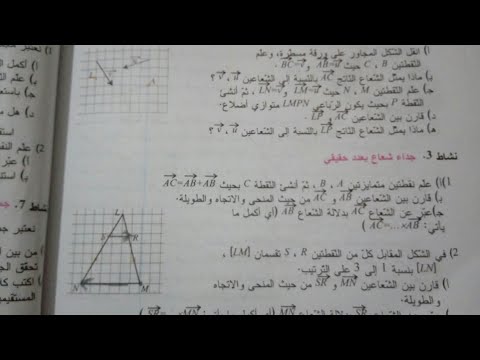 1) انقل الشكل المجاور على ورقة مسطرة، وعلّم
النقطتين B ، C حيث AB=u و BC=v
ب) ماذا يمثل الشعاع الناتج AC بالنسبة إلى الشعاعين u، v ؟
ج) علم النقطتين M ، N حيث LM=u و LN=v ، ثمّ أنشئ
النقطة P بحيث يكون الرباعي LMPN متوازي أضلاع.
د) قارن بين الشعاعين AC و LP
هـ) ماذا يمثل الشعاع الناتج LP بالنسبة إلى الشعاعين u ، v ؟
نشاط 3. جداء شعاع بعدد حقيقي
1)أ) علم نقطتين متمايزتين A ، B ، ثمّ أنشئ النقطة C بحيث AC=AB+AB
ب) قارن بين الشعاعين AB و AC من حيث المنحى والاتجاه والطويلة.
ج)عبّر عن الشعاع AC بدلالة الشعاع AB (أي أكمل ما
يأتي: AC=...×AB )
2) في الشكل المقابل كلّ من النقطتين R ، S تقسمان [LM] ،
[LN] بنسبة 1 إلى 3 على الترتيب.
قارن بين الشعاعين MN و SR من حيث المنحى والاتجاه
والطويلة.
L
R
N
M
1) نعتبر
أ) أكمل
ب) علم
ج) باستع
د) هل م
استق
2) علم النقط
أ) عبّر
ب) استن
نشاط 7.
نعتبر ج
1) من بين
تحقق الج
2) اكتب كة
المستقيم